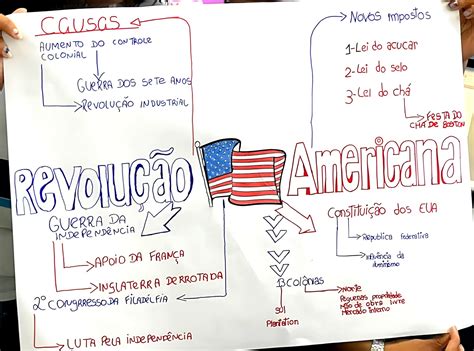 CAUSAS
AUMENTO DO CONTROLE
COLONIAL
GUERRA DOS SETE ANOS
REVOLUÇÃO INDUSTRIAL
NOVOS IMPOSTOS
1-Lei do açucar
2-Lei do selo
3-Lei do chá
FESTA DO
CHÁ DE BOSTON
REVOLUÇÃO AMERICANA
GUERRA DA
INDEPENDÊNCIA
APOIO DA FRANÇA
INGLATERRA DERROTADA
2º CONGRRESSO DA FILADÉLFIA
LUTA PELA INDEPENDÊNCIA
Constituição dos EUA
República Federativa
influência do
iluminismo
13 Colônias
sul
Plantation
Norte
Pequenas propriedade
mão de obra livre
Mercado interno